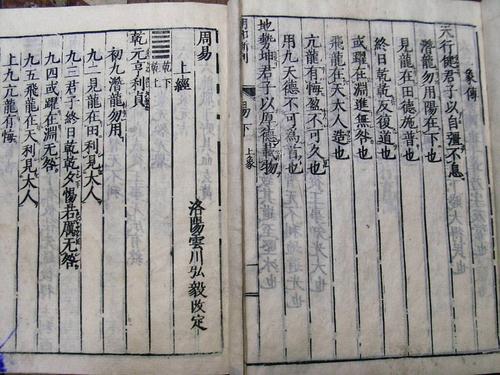 象傳
天行健君子以自彊不息
潛龍勿用陽在下也
見龍在田德施普也
終日乾乾反復道也
或躍在淵進无咎也
飛龍在天大人造也
亢龍有悔盈不可久也
用九天德不可為首也
地勢坤君子以厚德載物
易下 上象
周易
洛陽雲川弘毅改定
上經
乾下
乾上
乾元亨利貞
初九潛龍勿用
九二見龍在田利見大人
九三君子終日乾乾夕惕若厲无咎
九四或躍在淵无咎
九五飛龍在天利見大人
上九亢龍有悔